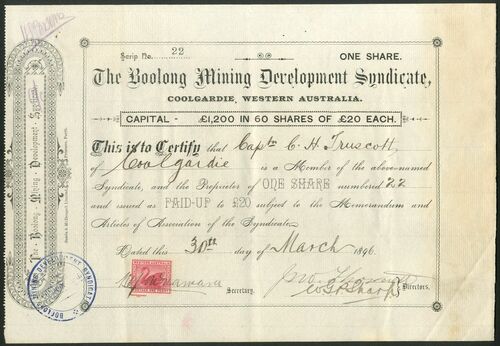 Scrip No. 22
ONE SHARE.
The Boolong Mining Development Syndicate,
COOLGARDIE, WESTERN AUSTRALIA.
CAPITAL - £1,200 IN 60 SHARES OF £20 EACH.
This is to Certify that Captn C. H. Truscott,
of Coolgardie is a Member of the above-named
Syndicate, and the Proprietor of ONE SHARE numbered 22
and issued as PAID-UP to £20 subject to the Memorandum and
Articles of Association of the Syndicate.
Dated this 30th day of March 1896.
Secretary.
Directors.
The Boolong Mining Development Syndicate
BOOLONG MINING DEVELOPMENT SYNDICATE
WESTERN AUSTRALIA